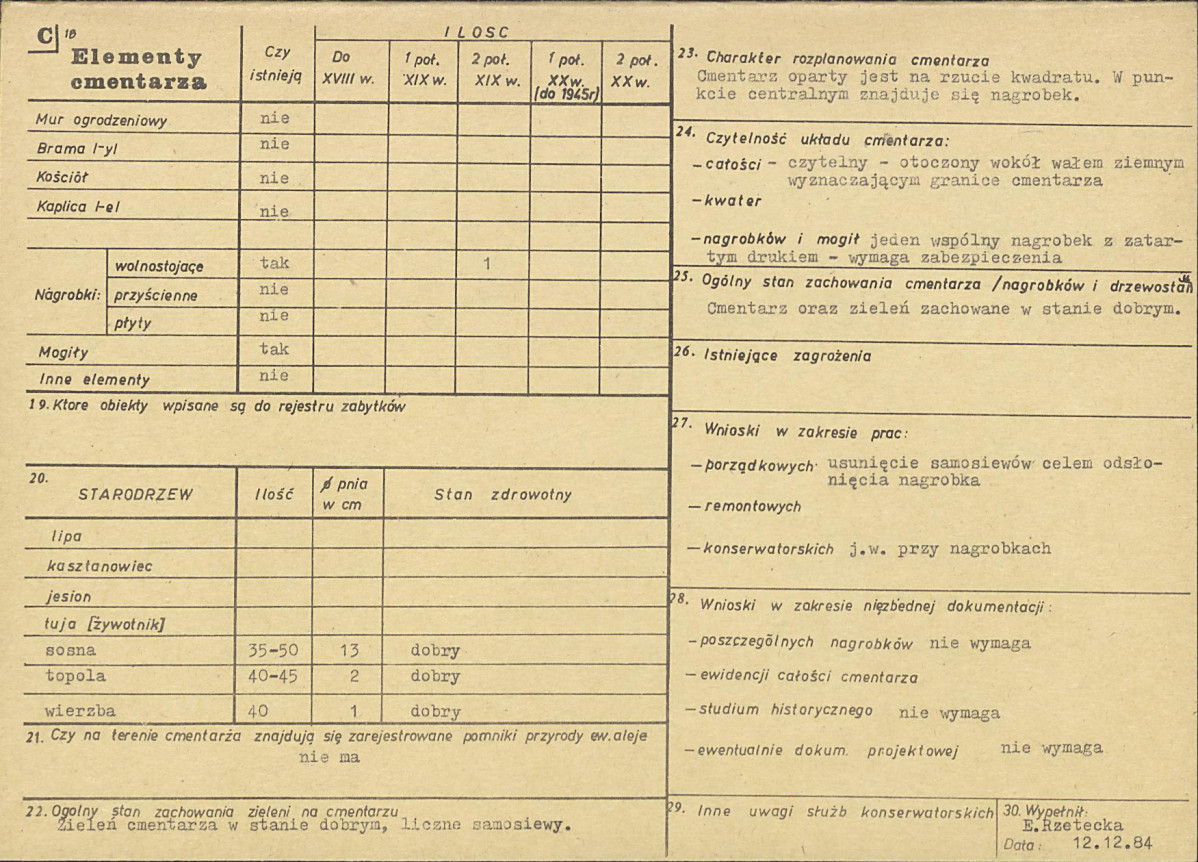 C 18
Elementy
cmentarza
Czy
istnieją
ILOSC
Do
XVIII w.
1 poł.
XIX w.
2 poł.
XIX w.
1 poł.
XX w.
(do 1945r)
2 poł.
XX w.
Mur ogrodzeniowy nie
Brama /-y/ nie
Kościół nie
Kaplica /-e/ nie
Nagrobki:
wolnostojące tak 1
przyścienne nie
płyty nie
Mogiły tak
Inne elementy nie
19. Ktore obiekty wpisane są do rejestru zabytków
20.
STARODRZEW
Ilość
ø pnia
w cm
Stan zdrowotny
lipa
kasztanowiec
jesion
tuja [żywotnik]
sosna 35-50 13 dobry
topola 40-45 2 dobry
wierzba 40 1 dobry
21. Czy na terenie cmentarża znajdują się zarejestrowane pomniki przyrody ew. aleje
nie ma
22. Ogolny stan zachowania zieleni na cmentarzu
Zieleń cmentarza w stanie dobrym, liczne samosiewy.
23. Charakter rozplanowania cmentarza
Cmentarz oparty jest na rzucie kwadratu. W pun-
kcie centralnym znajduje się nagrobek.
24. Czytelność układu cmentarza:
- całości - czytelny - otoczony wokół wałem ziemnym
wyznaczającym granice cmentarza
- kwater
- nagrobków i mogił jeden wspólny nagrobek z zatar-
tym drukiem - wymaga zabezpieczenia
25. Ogólny stan zachowania cmentarza /nagrobków i drzewostan
Cmentarz oraz zieleń zachowane w stanie dobrym.
26. Istniejące zagrożenia
27. Wnioski w zakresie prac:
- porządkowych usunięcie samosiewów celem odsło-
nięcia nagrobka
- remontowych
- konserwatorskich j.w. przy nagrobkach
28. Wnioski w zakresie nięzbednej dokumentacji:
- poszczególnych nagrobków nie wymaga
- ewidencji całości cmentarza
- studium historycznego nie wymaga
- ewentualnie dokum. projektowej nie wymaga
29. Inne uwagi służb konserwatorskich
30. Wypełnił:
E.Rzetecka
Data: 12.12.84